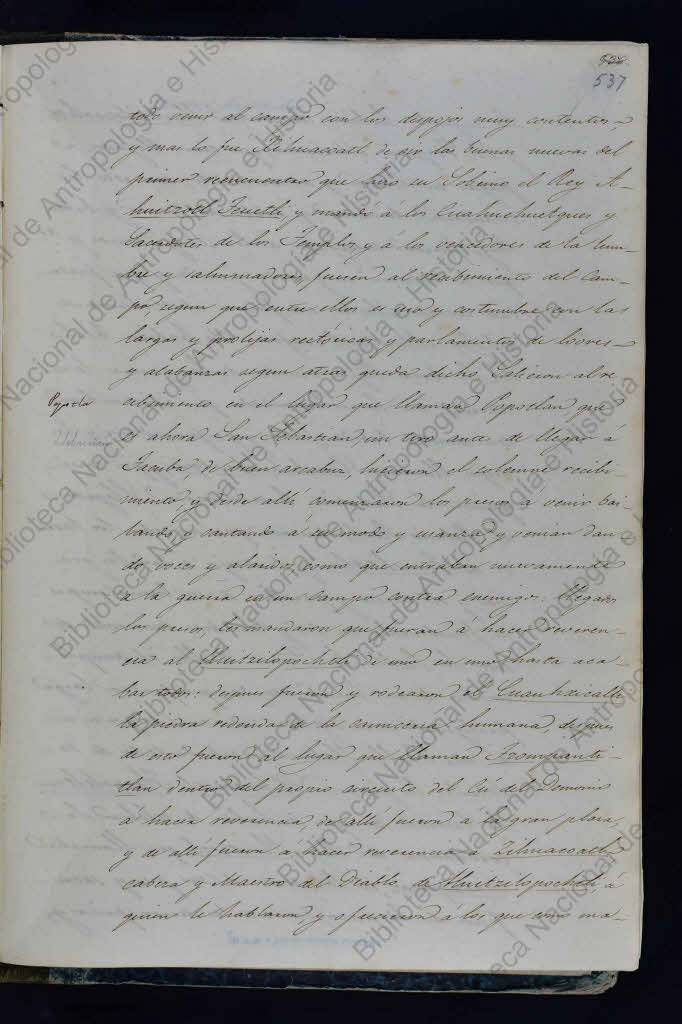 537
todo venir al campo con los despojos muy contentos,
y mas lo fue Zihuacoatl de oir las buenas nuevas del
primer reencuentro que hizo su Sobrino el Rey A-
huitzotl Teuctli, y mandó á los Cuahuehuetques y
Sacerdotes de los Templos y á los vencedores de la lum-
bre y sahumadores, fuesen al recibimiento del Cam-
po, segun que entre ellos es uso y costumbre con las
largas y prolijas rectóricas, y parlamentos de loores
y alabanzas segun atras queda dicho. Salieron al re-
cibimiento en el lugar que llaman Popotlan que
Popotla
es ahora San Sebastian, un tiro antes de llegar á
Tacuba, de buen arcabuz, hicieron el solemne recibi-
miento, y desde allí comenzaron los presos a venir bai-
lando y cantando á su modo y usanza y venian dan-
do voces y alaridos, como que entraban nuevamente
a la guerra en un campo contra enemigos. Llegados
los presos, les mandaron que fueran á hacer reveren-
cia al Huitzilopochtli de uno en uno hasta aca-
bar todos: despues fueron y rodearon el Cuauhxicalli
la piedra redonda de la carniceria humana, despues
de esto fueron al lugar que llaman Tzompanti-
tlan dentro del propio circuito del Cú del Demonio
á hacer reverencia, de allí fueron a la gran plaza,
y de allí fueron a hacer reverencia a Zihuacoatl
cabeza y Maestro del Diablo, de Huitzilopochtli, á
quien le hablaron, y ofrecieron á los que eran ma-
Biblioteca Nacional de Antropología e Historia